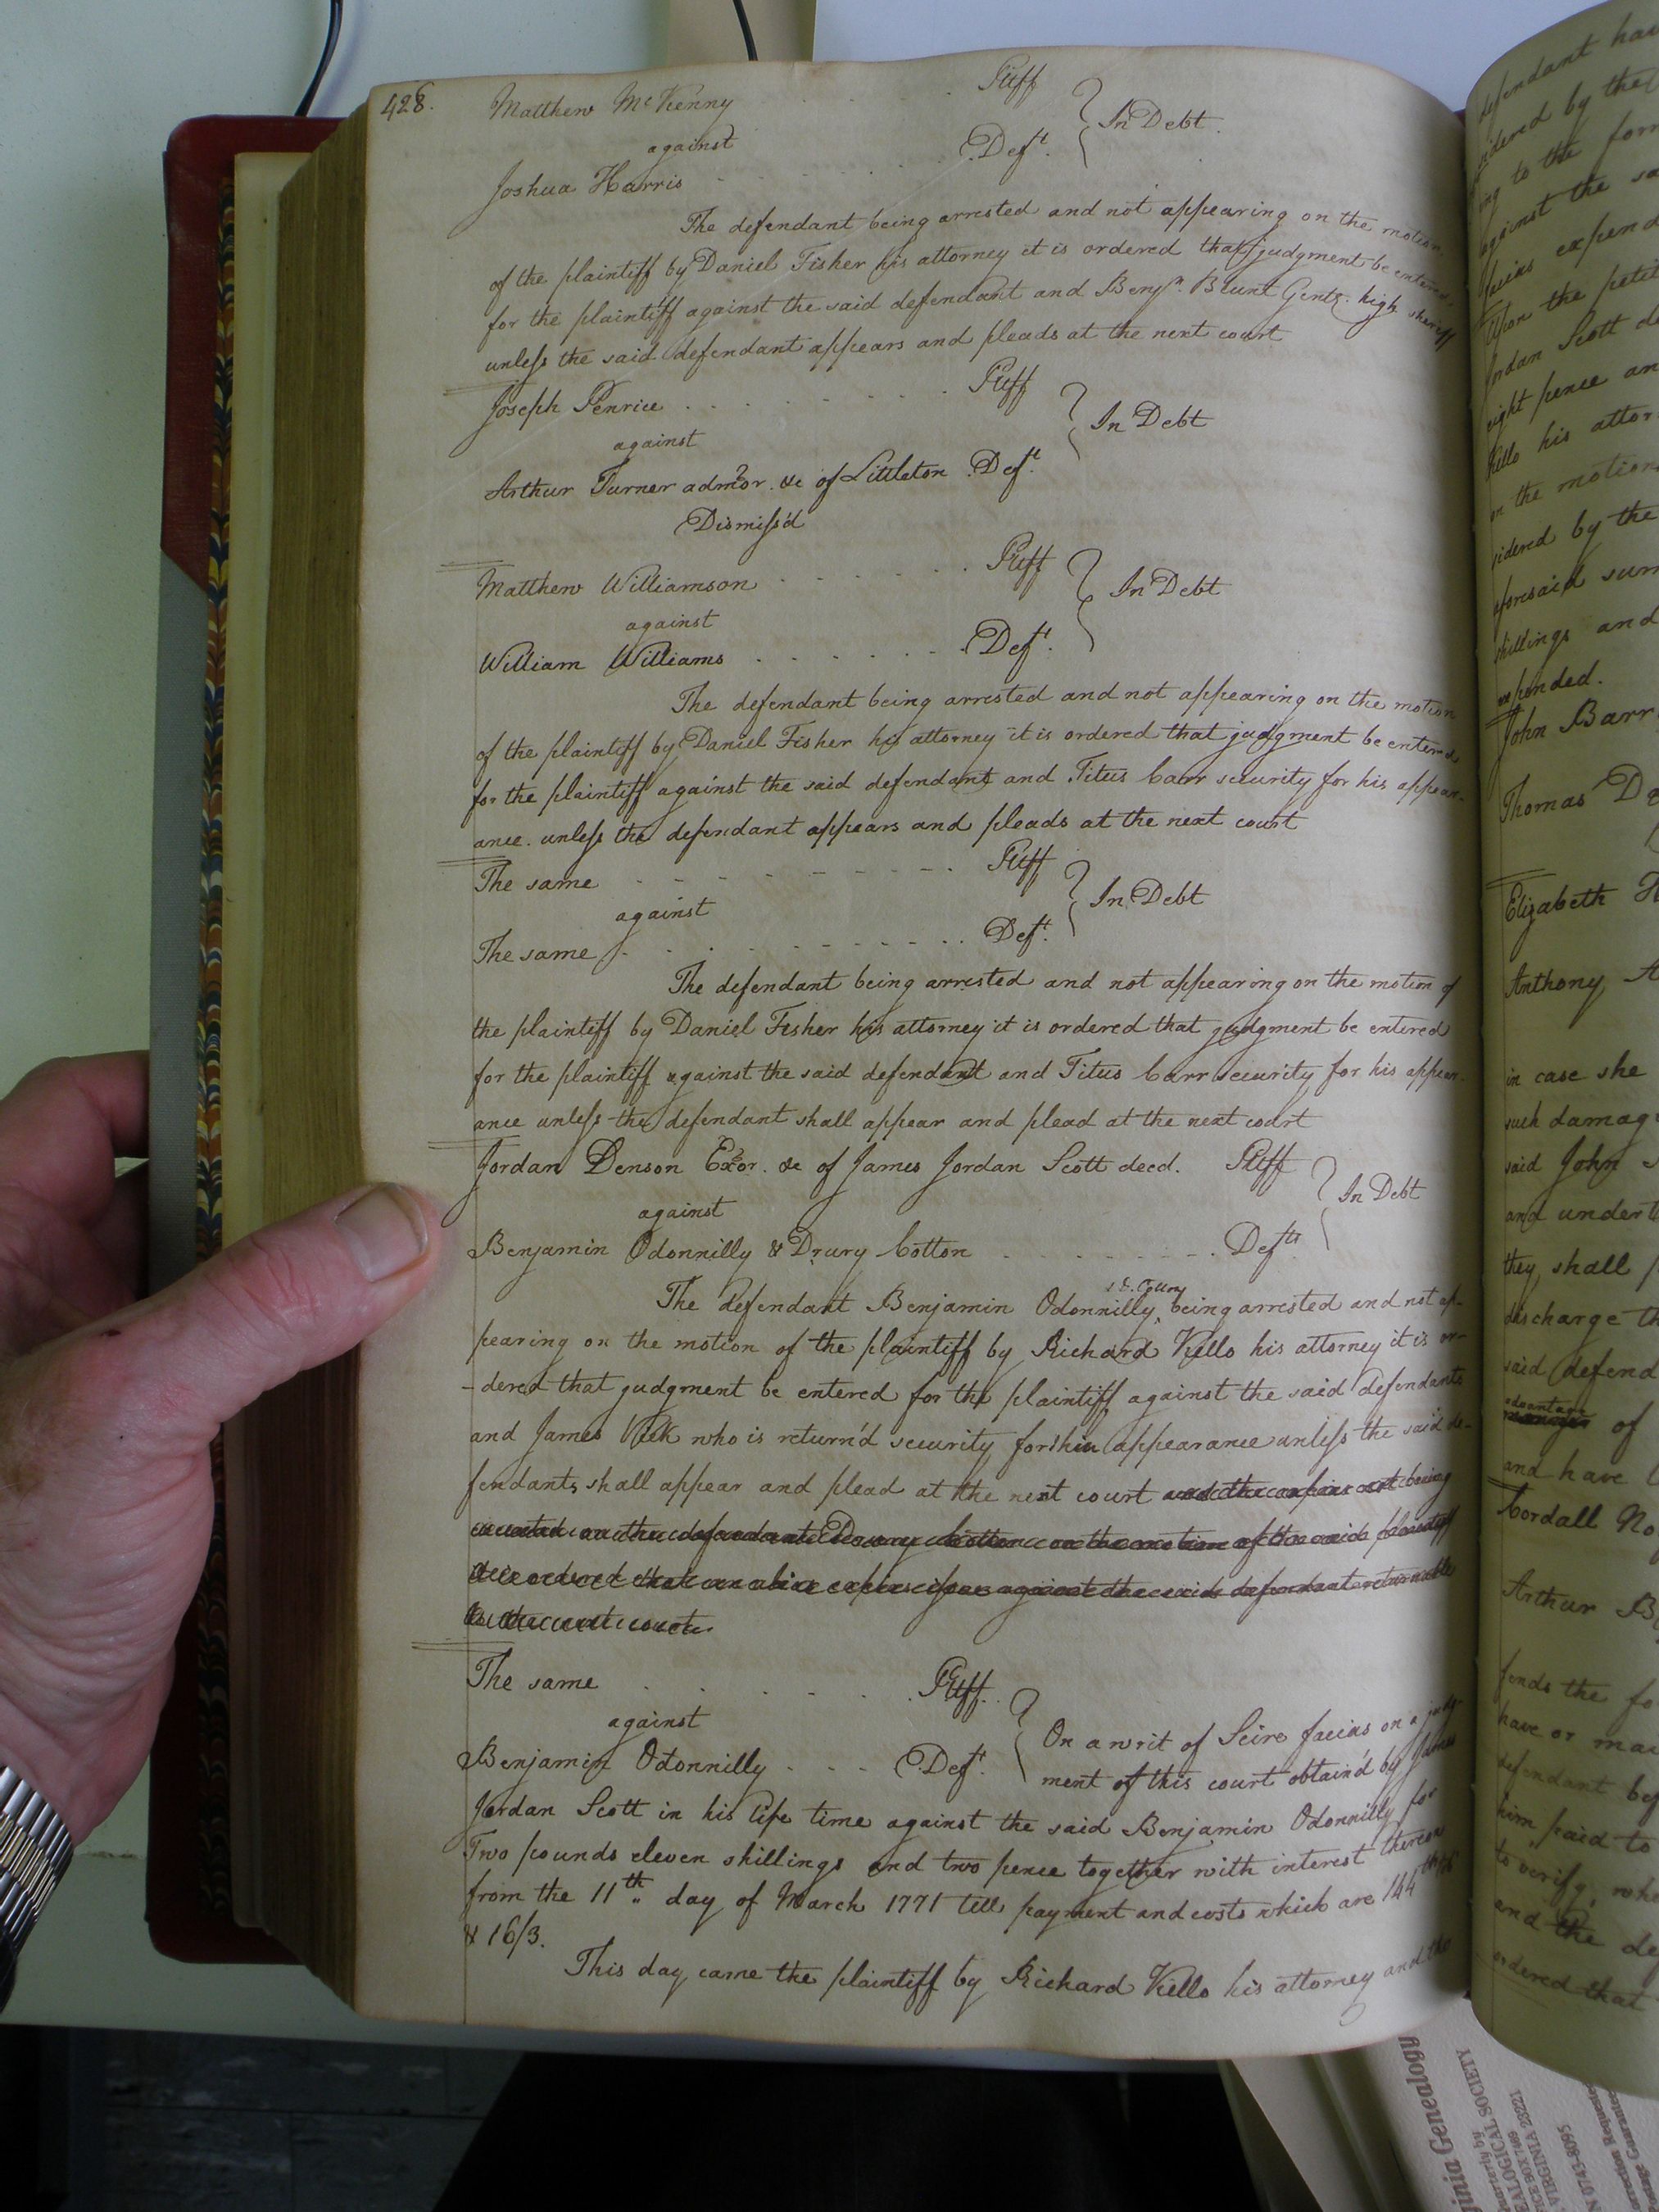 428.
Matthew McKenny . . . Pltff
against } In Debt.
Joshua Harris . . . . . . Deft.
The defendant being arrested and not appearing on the motion
of the plaintiff by Daniel Fisher his attorney it is ordered that judgment be entered
for the plaintiff against the said defendant and Benja. Blunt Gentn. high sheriff
unless the said defendant appears and pleads at the next court
Joseph Penrice . . . . . . . . . Pltff
against } In Debt
Arthur Turner admor. &c of Littleton Deft.
Dismiss'd
Matthew Williamson . . . . . . Pltff
against } In Debt
William Williams . . . . . . . Deft.
The defendant being arrested and not appearing on the motion
of the plaintiff by Daniel Fisher his attorney it is ordered that judgment be entered
for the plaintiff against the said defendant and Titus Carr security for his appear-
ance unless the defendant appears and pleads at the next court
The same - - - - - - - - - Pltff
against } In Debt
The same - - - - - - - - - Deft.
The defendant being arrested and not appearing on the motion of
the plaintiff by Daniel Fisher his attorney it is ordered that judgment be entered
for the plaintiff against the said defendant and Titus Carr security for his appear-
ance unless the defendant shall appear and plead at the next court
Jordan Denson Exor. &c of James Jordan Scott decd. Pltff
against } In Debt
Benjamin Odonnilly & Drury Cotton . . . . . . . . Defts
The defendant Benjamin Odonnilly being arrested and not ap-
pearing on the motion of the plaintiff by Richard Kello his attorney it is or-
-dered that judgment be entered for the plaintiff against the said defendants
and James who is return'd security for appearance unless the said de-
fendants shall appear and plead at the next court and the capias not being
executed on the defendant Drury Cotton on the motion of the said plaintiff
it is ordered that an alias capias issue against the said defendant returnable
to the next court.
The same . . . . . . Pltff.
against } On a writ of Scire facias on a judg-
Benjamin Odonnilly . . . Deft. ment of this court obtain'd by James
Jordan Scott in his life time against the said Benjamin Odonnilly for
Two pounds eleven shillings and two pence together with interest thereon
from the 11th day of March 1771 till payment and costs which are 144
& 16/3.
This day came the plaintiff by Richard Kello his attorney and the
defendant hav
sidered by the
ing to the form
against the sa
facias expend
Upon the petit
Jordan Scott de
eight pence an
Kello his attor
on the motion
sidered by the
aforesaid sum
shillings and
expended.
John Barr
Thomas De
Elizabeth H
Anthony A
in case she
such damag
said John
and undert
they shall
discharge th
said defend
advantage of
and have
Cordall No
Arthur B
fends the fo
have or mai
defendant be
him paid to
to verify, whe
and the de
ordered that
inia Genealogy
uarterly by
EALOGICAL SOCIETY
ICE BOX 7469
VIRGINIA 23221
0743-8095
rection Requested